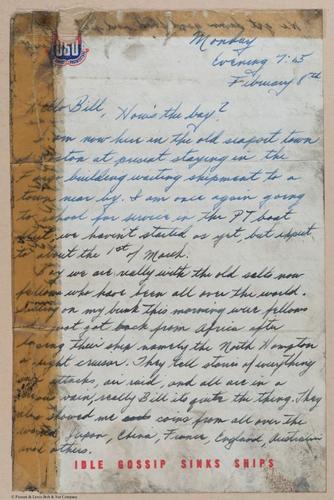 USO
Monday
Evening 7:45
February 8th
Hello Bill, How's the boy?
I am now here in the old seaport town
at present staying in the
building waiting shipment to a
town near by. I am once again going
to school for service in the PT boat
we havent started as yet but expect
to about the 1st of March.
we are really with the old salts now
fellows who have been all over the world.
Sitting on my bunk this morning were fellows
just got back from Africa after
losing their ship namely the North Hampton
a light cruiser. They tell stories of everything
attacks, air raid, and all are in a
vain, really Bill its quite the thing. They
also showed me coins from all over the
world Japan, China, France, England, Australian
and others.
IDLE GOSSIP SINKS SHIPS